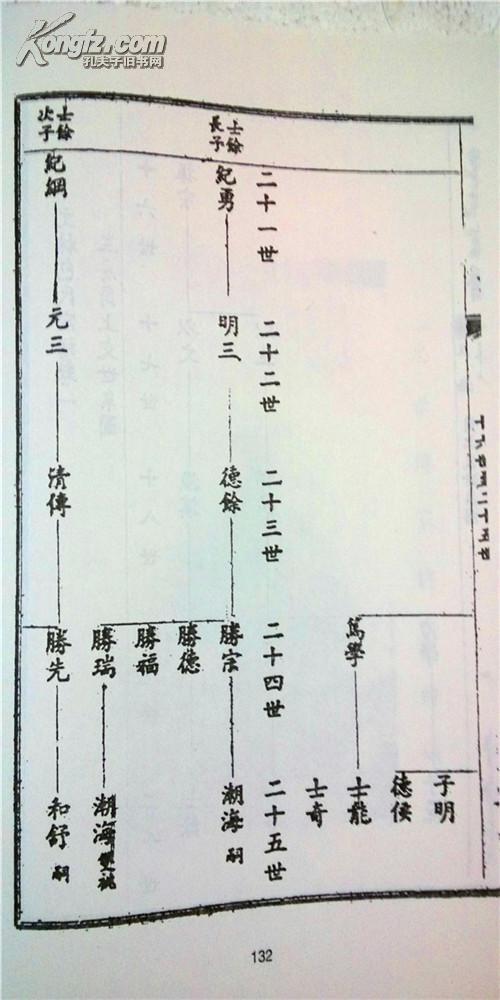 Kongfz.com
孔夫子旧书网
子明
德侯
篤學
士龍
士奇
二十一世
二十二世
二十三世
二十四世
二十五世
士餘
長子
紀勇
明三
德餘
勝宗
潮海 嗣
勝德
勝福
勝瑞
潮海 雙祧
士餘
次子
紀綱
元三
清傳
勝先
和舒 嗣
132